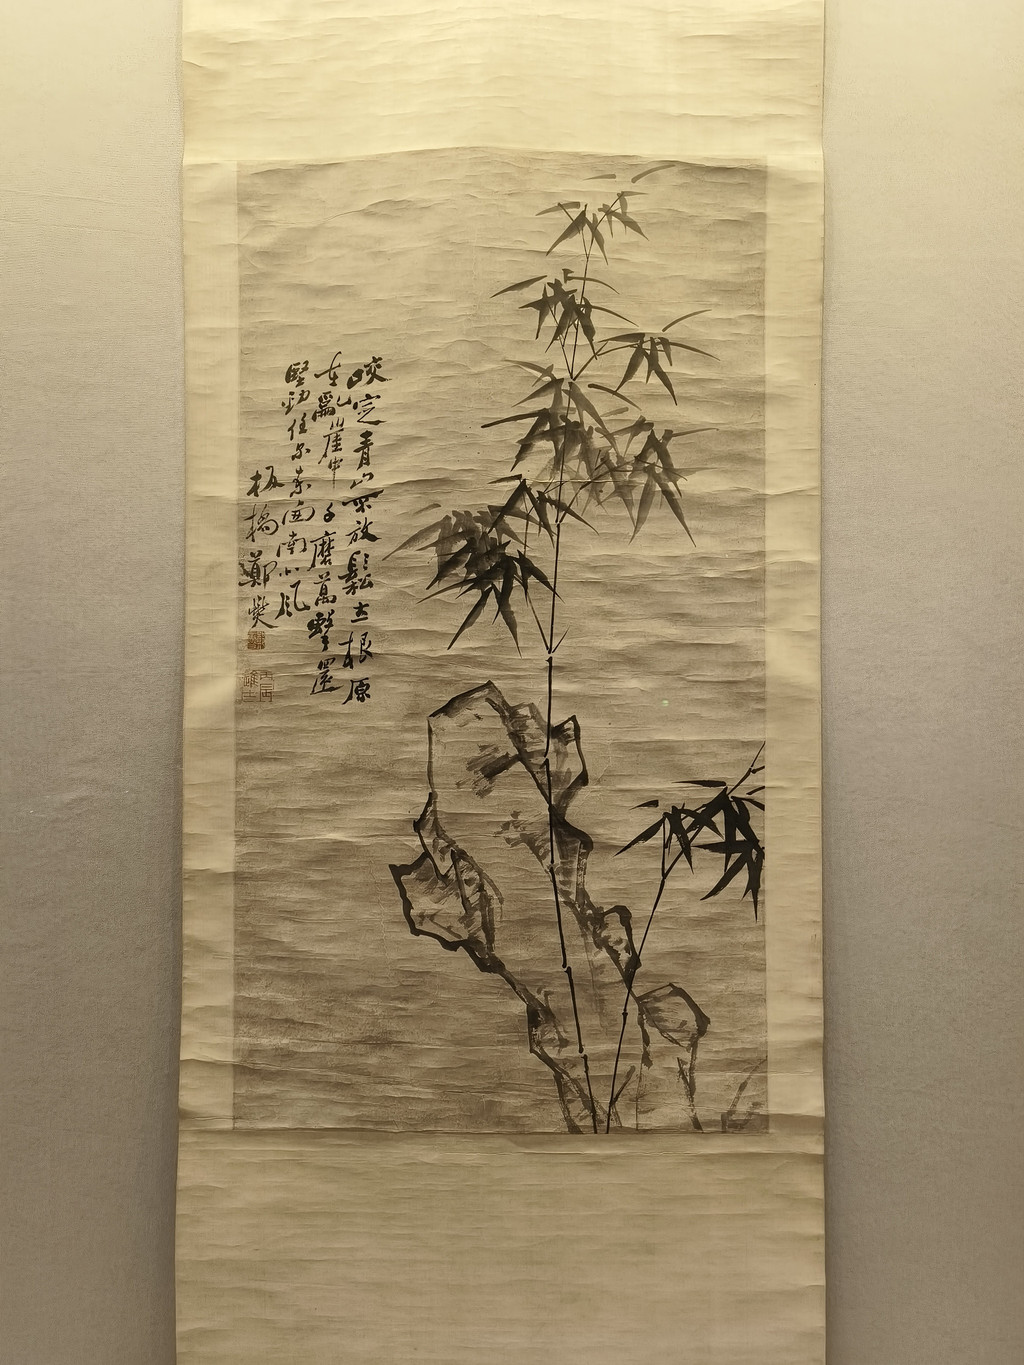 咬定青山不放鬆立根原
在亂崖中千磨萬擊還
堅勁任尔東西南北風
板橋鄭燮
丙辰進士